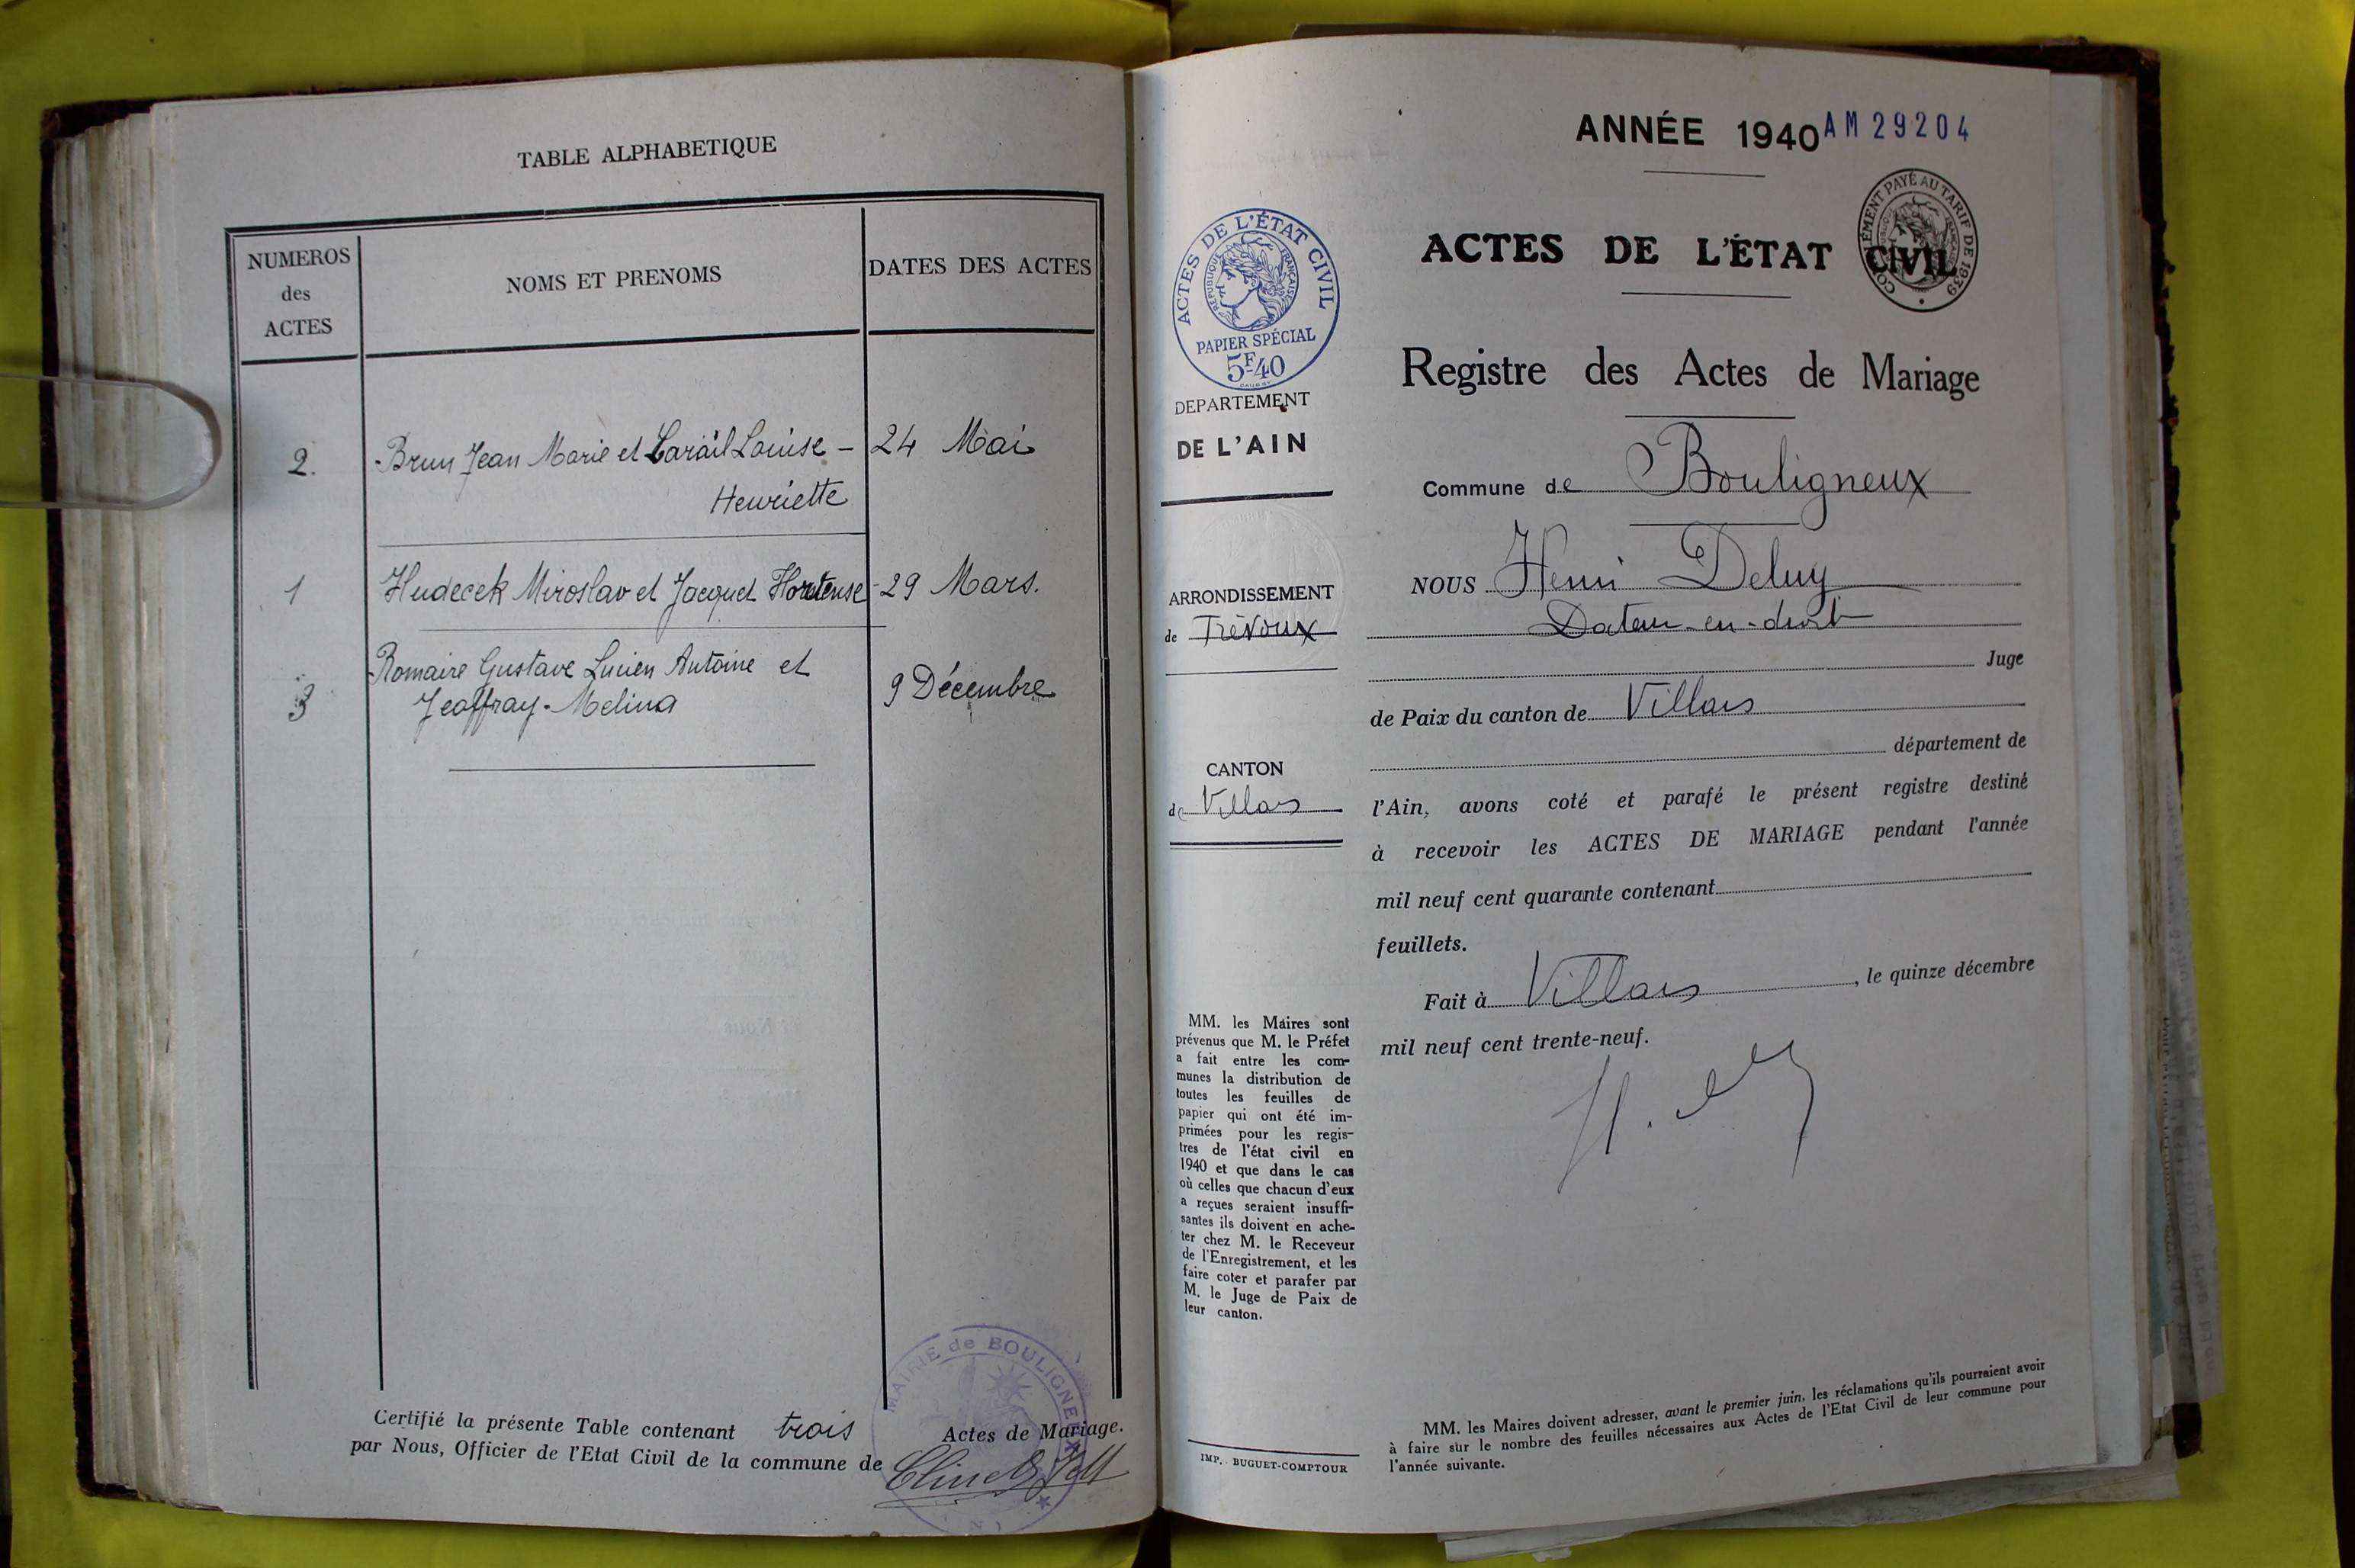 TABLE ALPHABETIQUE
NUMEROS
des
ACTES
NOMS ET PRENOMS
DATES DES ACTES
2. Brun Jean Marie et Louise – 24 Mai
Henriette
1 Hudecek Miroslav et Jacquet Hortense - 29 Mars.
Romaire Gustave Lucien Antoine et
3 Jeoffray - Melina 9 Décembre
Certifié la présente Table contenant trois Actes de Mariage.
par Nous, Officier de l'Etat Civil de la commune de
MAIRIE de BOULIGNEUX
ANNÉE 1940 AM 29204
ACTES DE L'ÉTAT CIVIL
PAPIER SPÉCIAL
5F40
RÉPUBLIQUE FRANÇAISE
COMPLÉMENT PAYÉ AU TARIF DE 1939
DEPARTEMENT
DE L'AIN
ARRONDISSEMENT
de Trévoux
CANTON
de Villars
MM. les Maires sont
prévenus que M. le Préfet
a fait entre les com-
munes la distribution de
toutes les feuilles de
papier qui ont été im-
primées pour les regis-
tres de l'état civil en
1940 et que dans le cas
où celles que chacun d'eux
a reçues seraient insuffi-
santes ils doivent en ache-
ter chez M. le Receveur
de l'Enregistrement, et les
faire coter et parafer par
M. le Juge de Paix de
leur canton.
IMP. BUGUET-COMPTOUR
ACTES DE L'ÉTAT CIVIL
Registre des Actes de Mariage
Commune de Bouligneux
NOUS Henri Deluy
Docteur-en-droit
Juge
de Paix du canton de Villars
département de
l'Ain, avons coté et parafé le présent registre destiné
à recevoir les ACTES DE MARIAGE pendant l'année
mil neuf cent quarante contenant
feuillets.
Fait à Villars, le quinze décembre
mil neuf cent trente-neuf.
MM. les Maires doivent adresser, avant le premier juin, les réclamations qu'ils pourraient avoir
à faire sur le nombre des feuilles nécessaires aux Actes de l'Etat Civil de leur commune pour
l'année suivante.